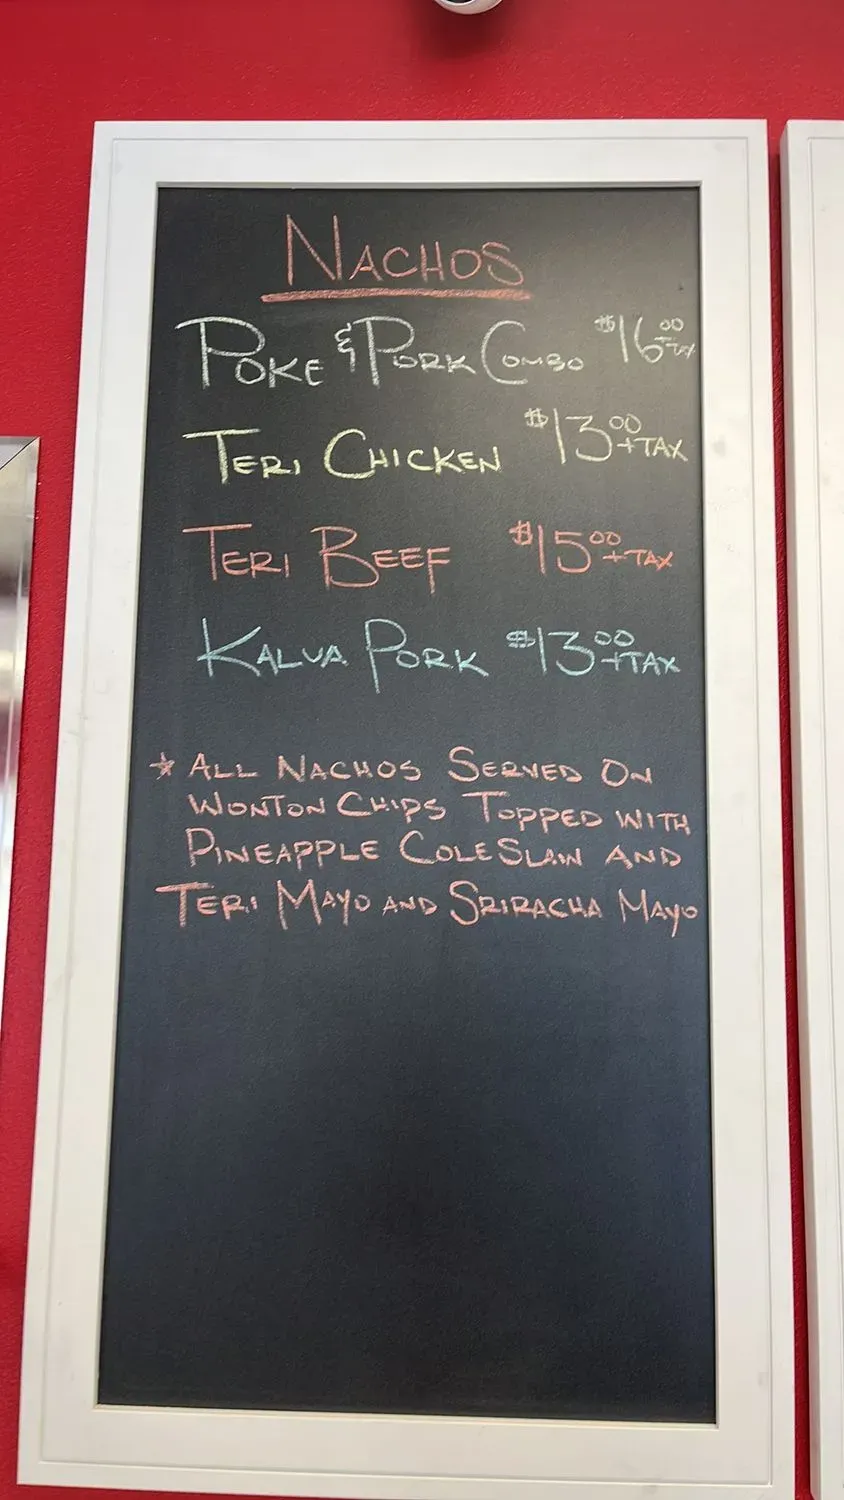 NACHOS
POKE & PORK COMBO $16.00 +TAX
TERI CHICKEN $13.00 +TAX
TERI BEEF $15.00 +TAX
KALUA PORK $13.00 +TAX
* ALL NACHOS SERVED ON
WONTON CHIPS TOPPED WITH
PINEAPPLE COLESLAW AND
TERI MAYO AND SRIRACHA MAYO